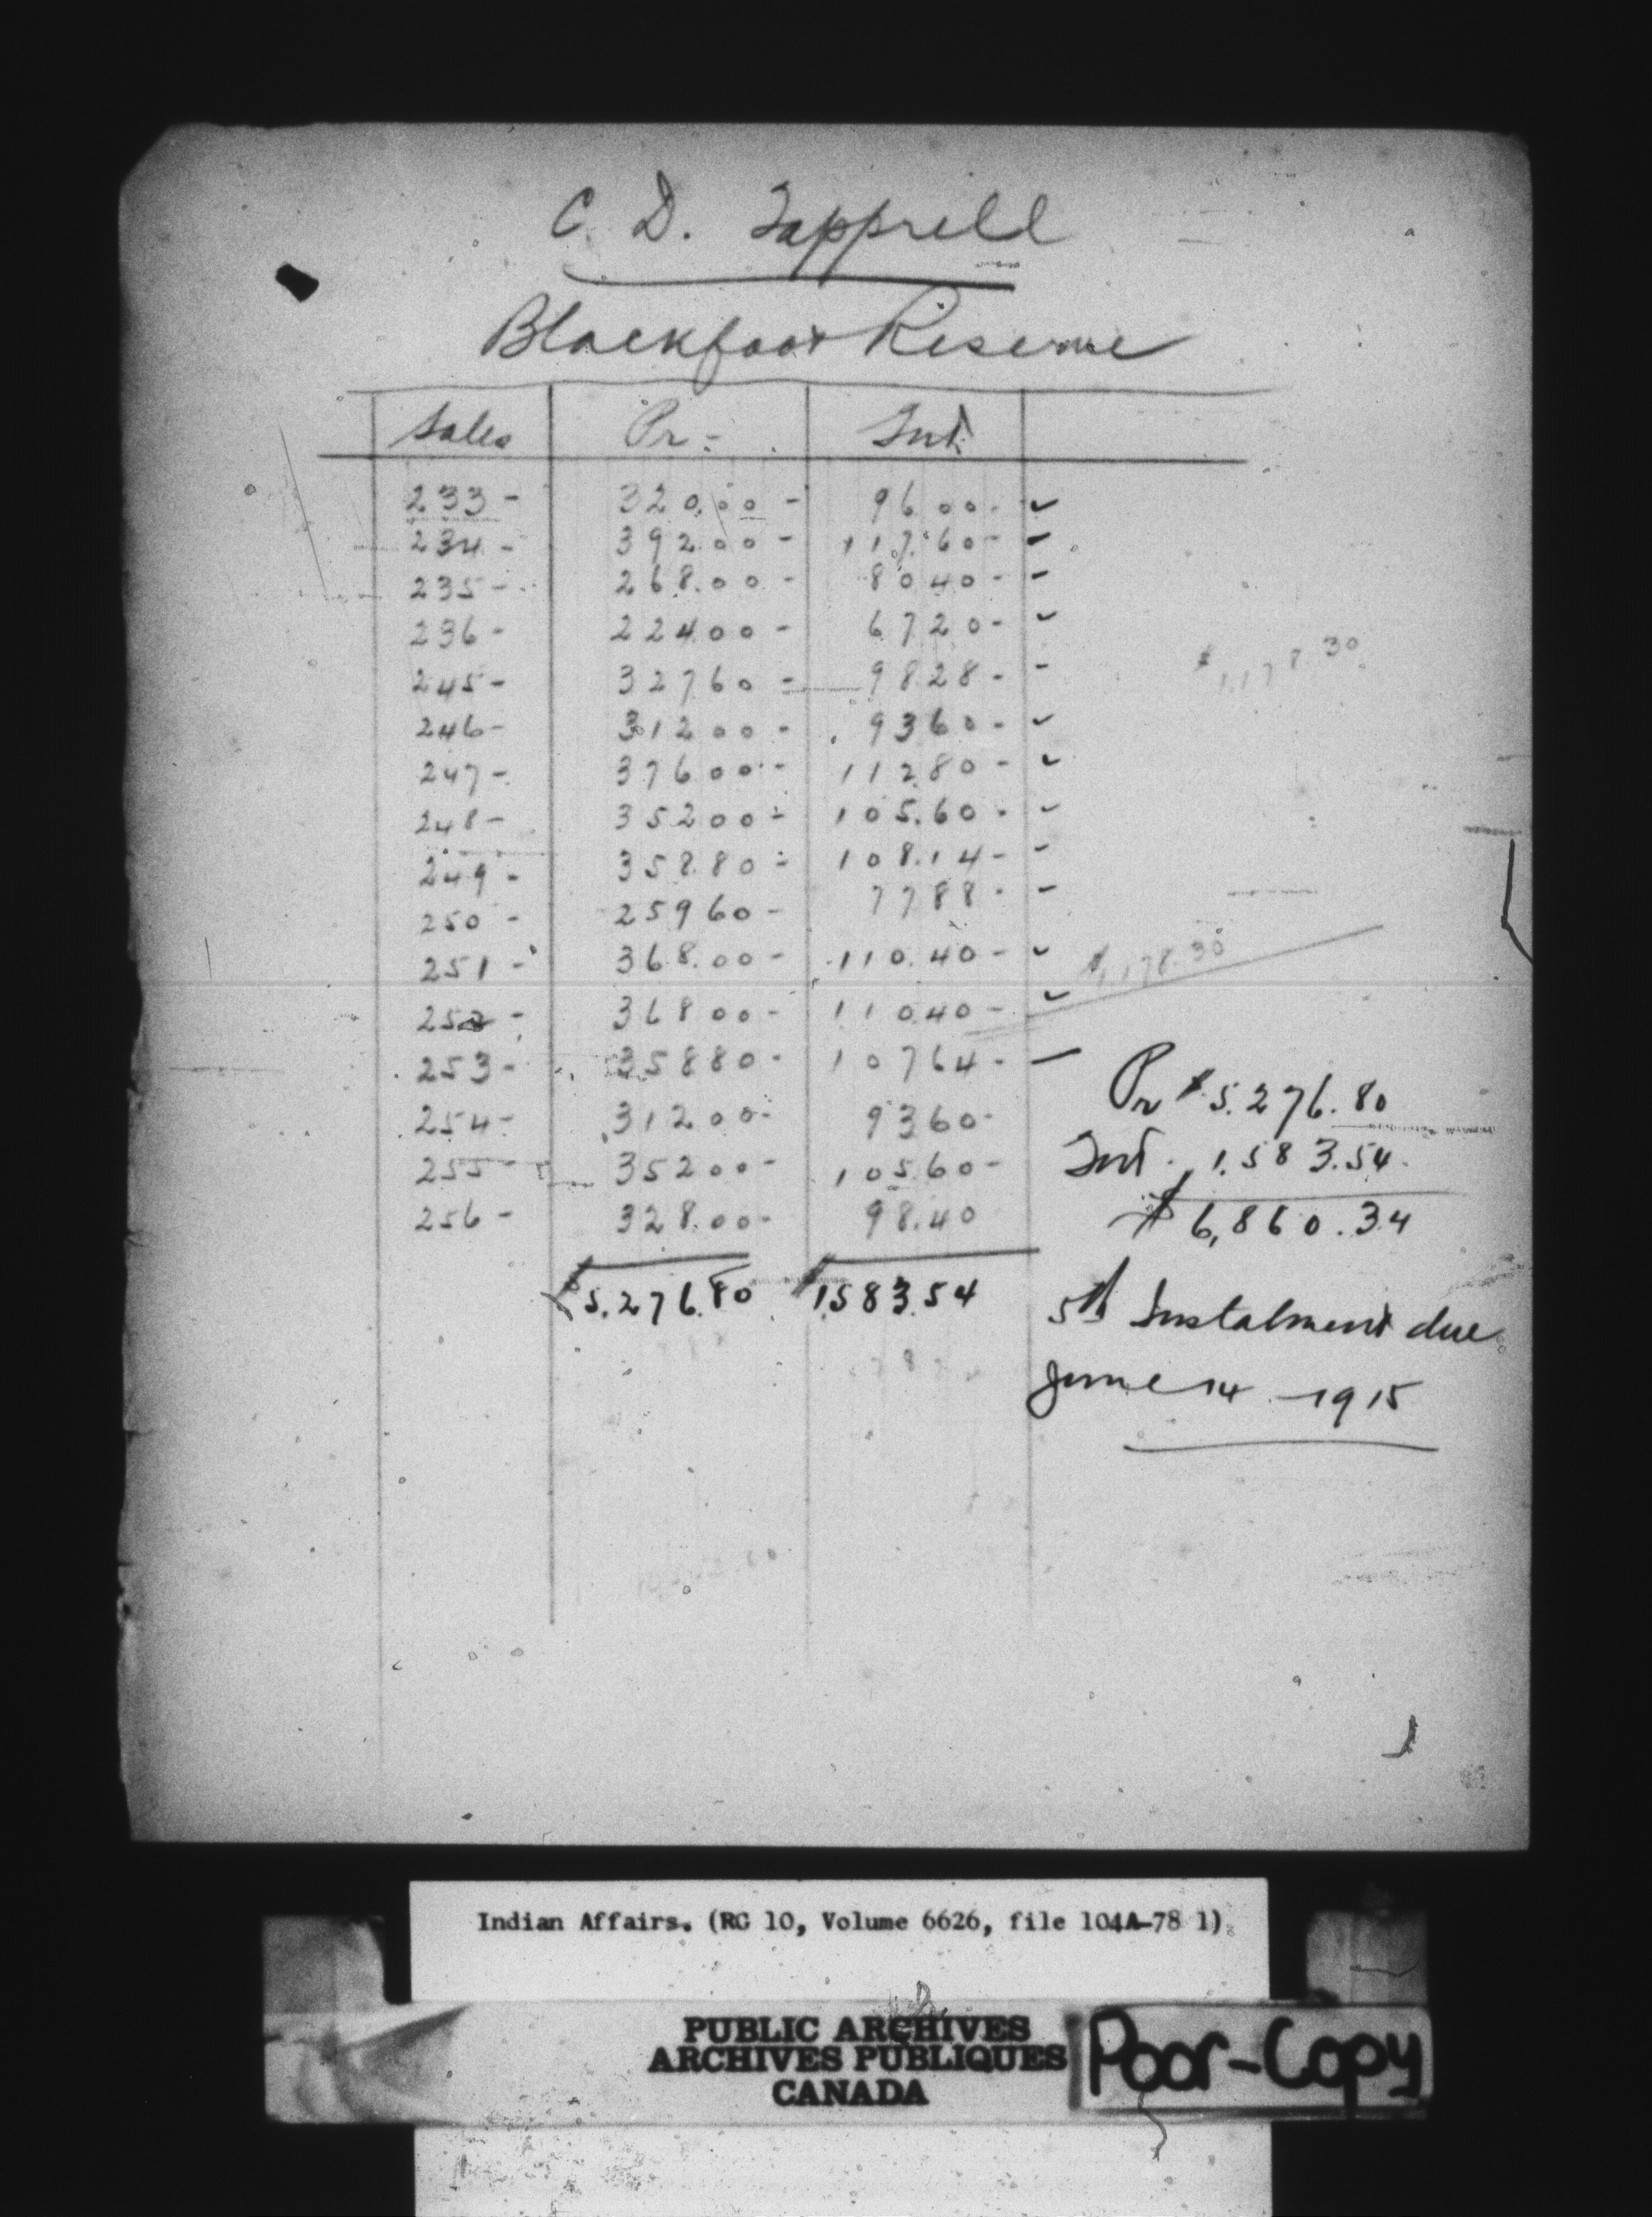 C. D. Tapprell
Blackfoot Reserve
Sales Pr - Int.
233 - 320.00 - 96 00 - ✓
234 - 392.00 - 117.60 - ✓
235 - 268.00 - 80 40 - -
236 - 224.00 - 67 20 - ✓
245 - 327 60 - 98 28 - -
246 - 312 00 - 93 60 - ✓
247 - 376 00 - 112 80 - ✓
248 - 352 00 - 105.60 - ✓
249 - 358.80 - 108.14 - -
250 - 259 60 - 77 88 - -
251 - 368.00 - 110.40 - ✓
$1,178.30
252 - 368 00 - 110 40 - ✓
253 - 358 80 - 107 64 - -
254 - 312 00 - 93 60 -
255 - 352 00 - 105.60 -
256 - 328.00 - 98.40
$5.276.80 $1583.54
Pr $5.276.80
Int. 1.583.54
$6,860.34
5th Instalment due
June 14 - 1915
Indian Affairs. (RG 10, Volume 6626, file 104A-78 1)
PUBLIC ARCHIVES
ARCHIVES PUBLIQUES
CANADA
Poor-Copy